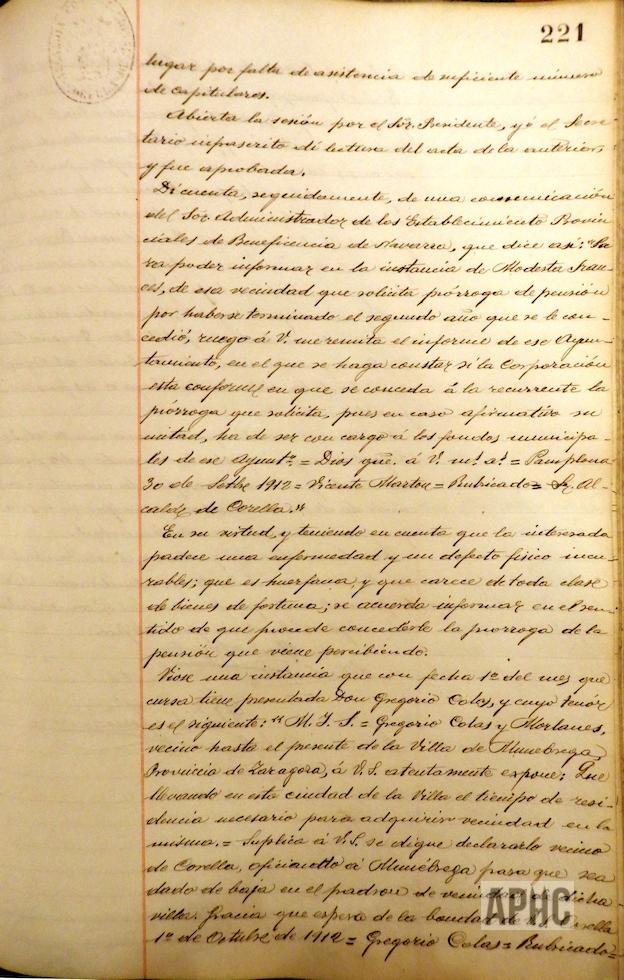 221
lugar por falta de asistencia de suficiente número
de capitulares.
Abierta la sesión por el Sor. Presidente, yó el Secre-
tario infrascrito dí lectura del acta de la anterior,
y fue aprobada.
Dí cuenta, seguidamente, de una comunicación
del Sor. Administrador de los Establecimiento Provin-
ciales de Beneficencia de Navarra, que dice así: "Pa-
ra poder informar en la instancia de Modesta Fran-
ces, de esa vecindad que solicita prórroga de pensión
por haberse terminado el segundo año que se le con-
cedió, ruego á V. me remita el informe de ese Ayun-
tamiento, en el que se haga constar si la Corporación
esta conforme en que se conceda á la recurrente la
prórroga que solicita, pues en caso afirmativo su
mitad, ha de ser con cargo á los fondos municipa-
les de ese Ayuntº. = Dios gue. á V. ms. as. = Pamplona
30 de Setbre 1912 = Vicente = Rubricado = Sr. Al-
calde de Corella."
En su virtud, y teniendo en cuenta que la interesada
padece una enfermedad y un defecto físico incu-
rables; que es huerfana, y que carece de toda clase
de bienes de fortuna; se acuerda informar en el sen-
tido de que procede concederle la prorroga de la
pensión que viene percibiendo.
Viose una instancia que con fecha 1º del mes que
cursa tiene presentada Don Gregorio Colas, y cuyo tenór
es el siguiente: "M. I. S. = Gregorio Colas y Morlanes,
vecino hasta el presente de la Villa de Munébrega,
Provincia de Zaragoza, á V.S. atentamente expone: Que
llevando en esta ciudad de la Villa el tiempo de resi-
dencia necesario para adquirir vecindad en la
misma. = Suplica á V.S. se digne declararlo vecino
de Corella, oficiando á Munébrega para que sea
dado de baja en el padron de vecindad de dicha
villa. Gracia que espera de la bondad de V.S. Corella
1º de Octubre de 1912 = Gregorio Colas = Rubricado =
APHC